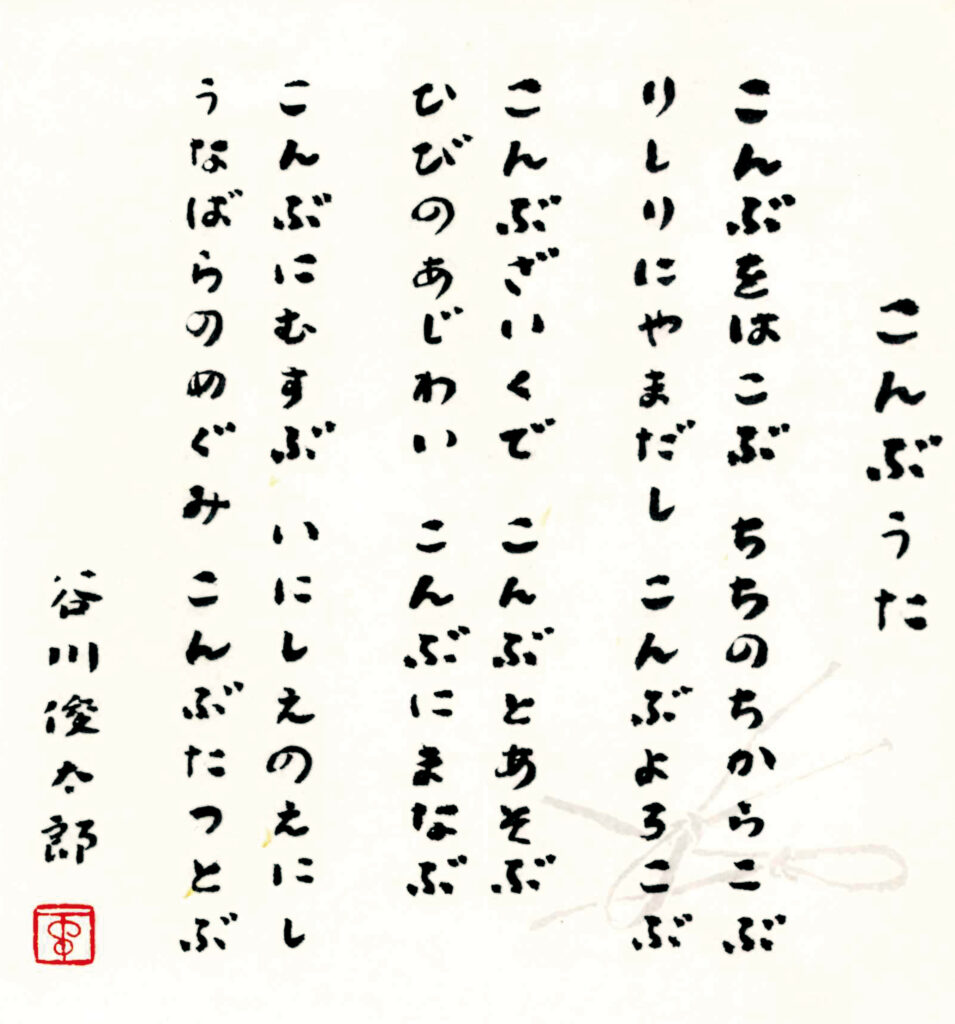 こんぶうた
こんぶをはこぶ　ちちのちからこぶ
りしりにやまだし　こんぶよろこぶ
こんぶざいくで　こんぶとあそぶ
ひびのあじわい　こんぶにまなぶ
こんぶにむすぶ　いにしえのえにし
うなばらのめぐみ　こんぶたっとぶ
谷川俊太郎